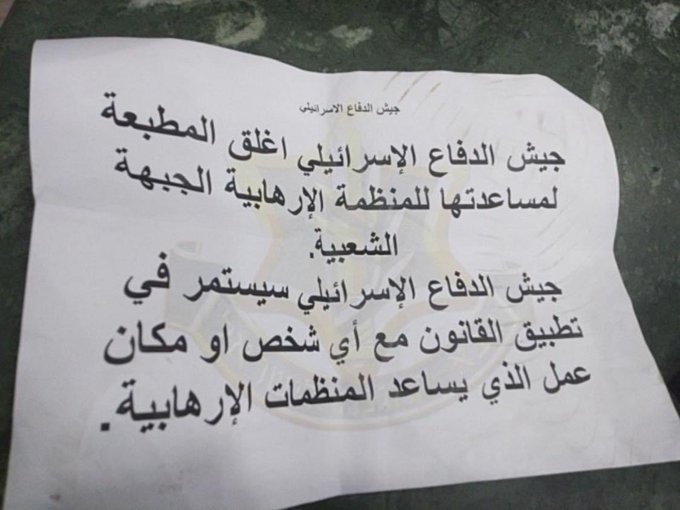 جيش الدفاع الاسرائيلي
جيش الدفاع الإسرائيلي اغلق المطبعة
لمساعدتها للمنظمة الإرهابية الجبهة
الشعبية.
جيش الدفاع الإسرائيلي سيستمر في
تطبيق القانون مع أي شخص او مكان
عمل الذي يساعد المنظمات الإرهابية.